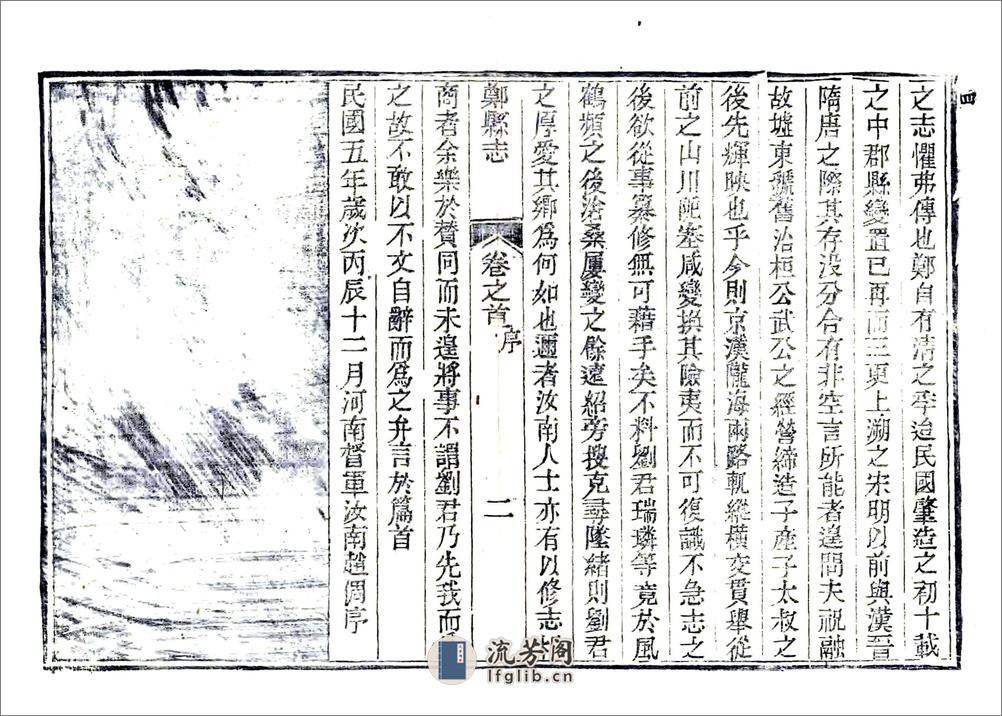 之志懼弗傳也鄭自有清之季迨民國肇造之初十載
之中郡縣變置已再而三更上溯之宋明以前與漢晉
隋唐之際其存没分合有非空言所能者遑問夫祝融
故墟東虢舊治桓公武公之經營締造子產子太叔之
後先輝映也乎今則京漢隴海兩路軌縱橫交貫舉從
前之山川阨塞咸變換其險夷而不可復識不急志之
後欲從事纂修無可藉手矣不料劉君瑞璘等竟於風
鶴頻之後滄桑屢變之餘遠紹旁搜克尋墜緒則劉君
之厚愛其鄉為何如也邇者汝南人士亦有以修志
鄭縣志
卷之首
序
二
商者余樂於贊同而未遑將事不謂劉君乃先我而
之故不敢以不文自辭而為之弁言於篇首
民國五年歲次丙辰十二月河南督軍汝南趙倜序
四
流芳阁
lfglib.cn